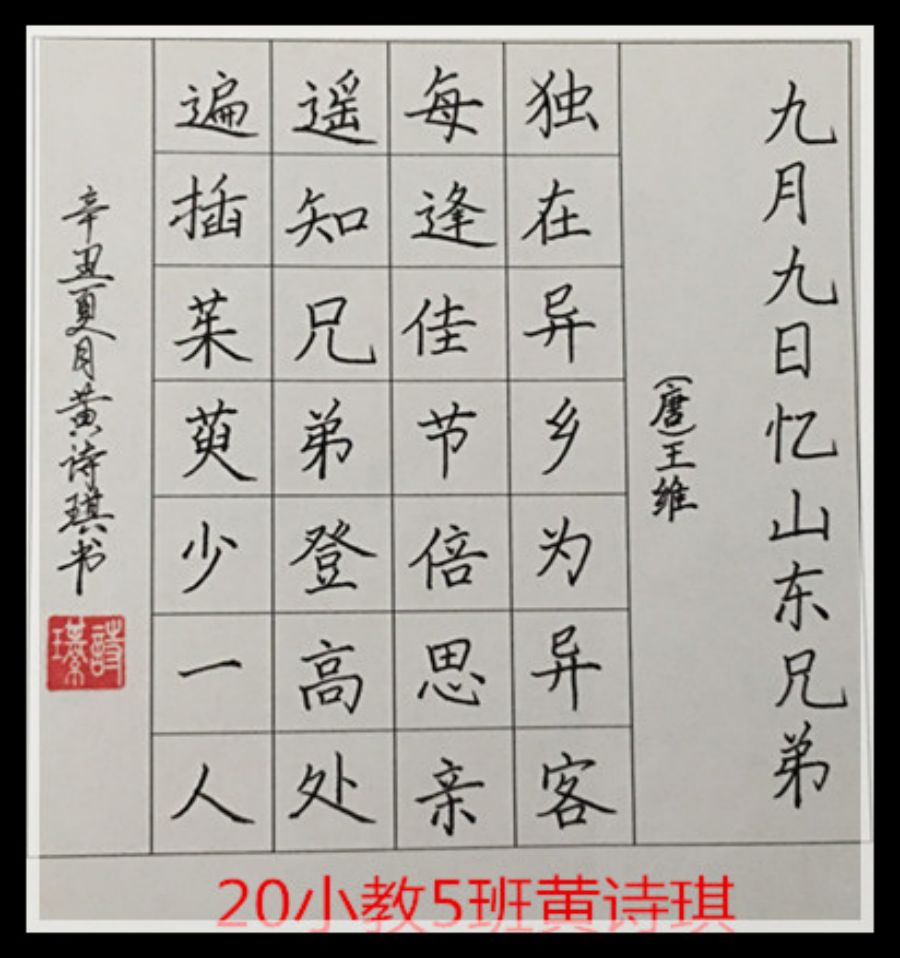 九月九日忆山东兄弟
(唐)王维
独在异乡为异客
每逢佳节倍思亲
遥知兄弟登高处
遍插茱萸少一人
辛丑夏月黄诗琪书
詩琪
20小教5班黄诗琪